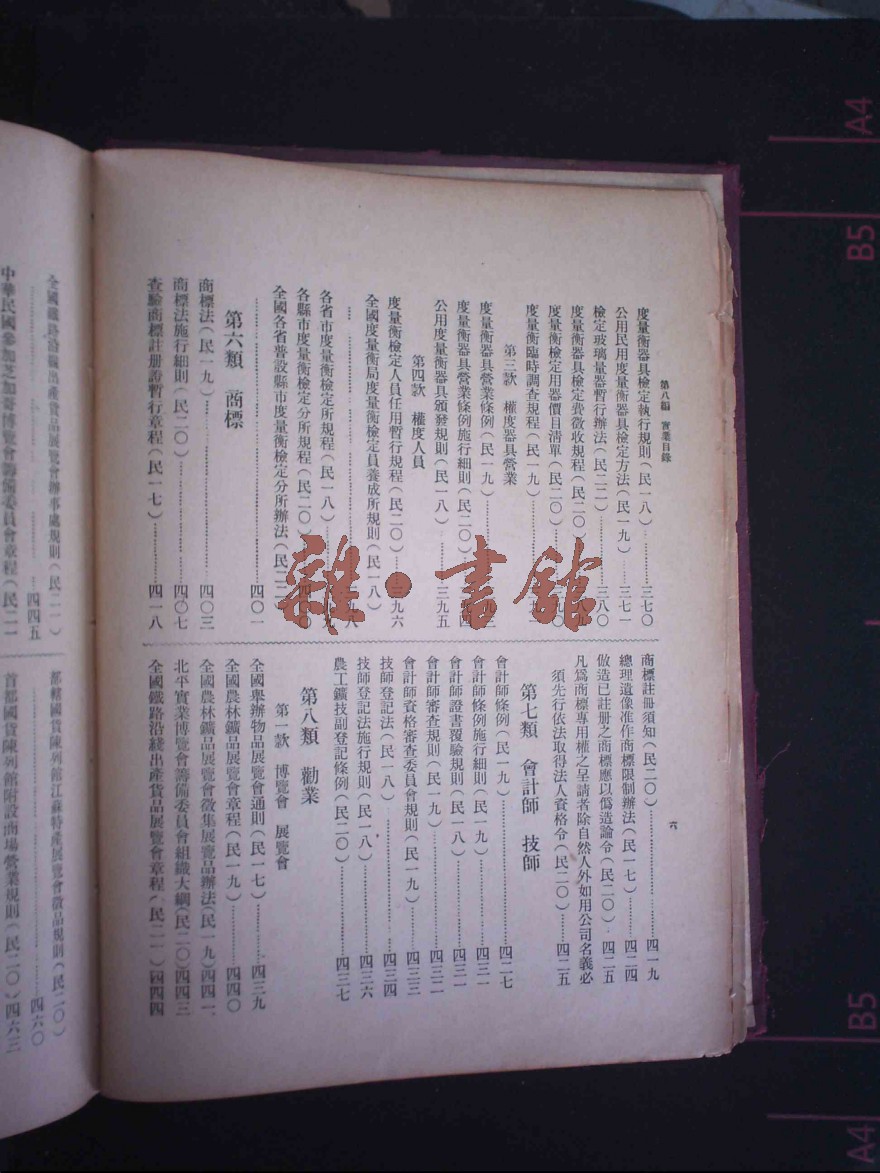 第八編　實業目錄
度量衡器具檢定執行規則（民一八）………三七〇
公用民用度量衡器具檢定方法（民一九）……三七一
檢定玻璃量器暫行辦法（民二二）………三八〇
度量衡器具檢定費徵收規程（民二〇）
度量衡檢定用器價目清單（民二〇）
度量衡臨時調查規程（民一九）
第三款　權度器具營業
度量衡器具營業條例（民一九）
度量衡器具營業條例施行細則（民二〇）
公用度量衡器具頒發規則（民一八）……三九五
第四款　權度人員
度量衡檢定人員任用暫行規程（民二〇）……三九六
全國度量衡局度量衡檢定員養成所規則（民一八）
各省市度量衡檢定所規程（民一八）
各縣市度量衡檢定分所規程（民二〇）
全國各省普設縣市度量衡檢定分所辦法（民二二）
………四〇一
第六類　商標
商標法（民一九）………四〇三
商標法施行細則（民二〇）………四〇七
查驗商標註册證暫行章程（民一七）………四一八
商標註冊須知（民二〇）………四一九
總理遺像准作商標限制辦法（民一七）………四二四
倣造已註册之商標應以僞造論令（民二〇）……四二五
凡爲商標專用權之呈請者除自然人外如用公司名義必
須先行依法取得法人資格令（民二〇）……四二五
第七類　會計師　技師
會計師條例（民一九）………四二七
會計師條例施行細則（民一九）………四三一
會計師證書覆驗規則（民一八）………四三一
會計師審查規則（民一九）………四三二
會計師資格審查委員會規則（民一九）………四三三
技師登記法（民一八）………四三四
技師登記法施行規則（民一八）………四三六
農工鑛技副登記條例（民二〇）………四三七
第八類　勸業
第一款　博覽會　展覽會
全國舉辦物品展覽會通則（民一七）………四三九
全國農林鑛品展覽會章程（民一九）………四四〇
全國農林鑛品展覽會徵集展覽品辦法（民一九）四四一
北平實業博覽會籌備委員會組織大綱（民二〇）四四三
全國鐵路沿綫出產貨品展覽會章程（民二一）四四四
六
全國鐵路沿綫出產貨品展覽會辦事處規則（民二一）
………四四五
中華民國參加芝加哥博覽會籌備委員會章程（民二一
部轄國貨陳列館江蘇特產展覽會徵品規則（民二〇）
………四六〇
首都國貨陳列館附設商場營業規則（民二〇）四六三
雜·書館
A4
B5
B5
A4